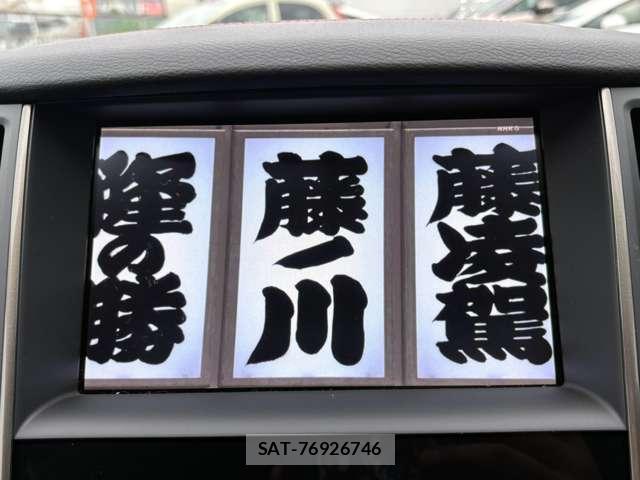 NHK G
藤凌駕
藤ノ川
隆の勝
SAT-76926746